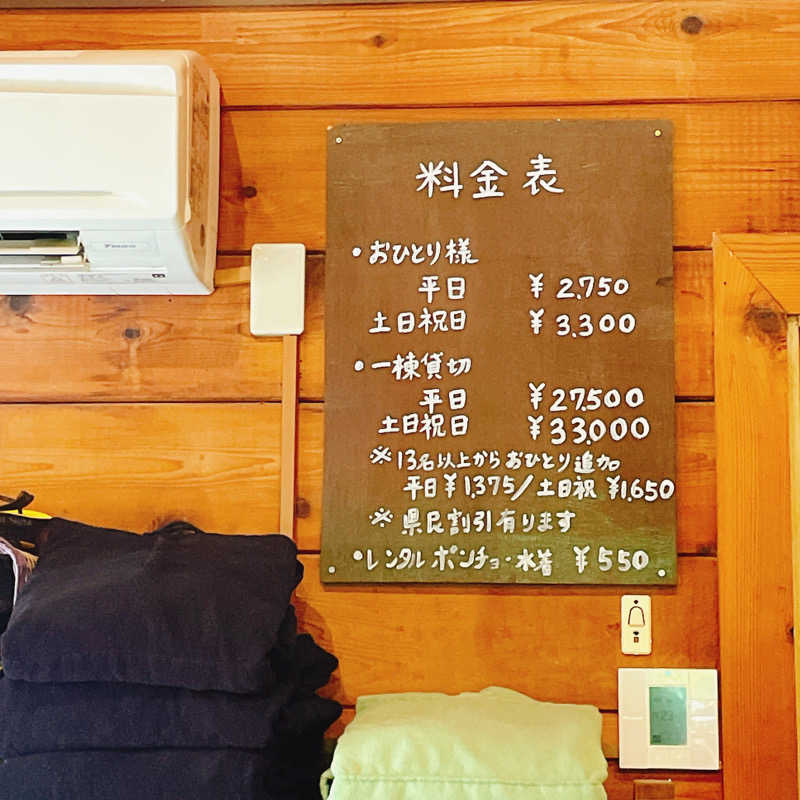 料金表
・おひとり様
平日 ￥2,750
土日祝日 ￥3,300
・一棟貸切
平日 ￥27,500
土日祝日 ￥33,000
※13名以上からおひとり追加
平日￥1,375/土日祝 ￥1,650
※ 県民割引有ります
・レンタルポンチョ・水着 ￥550